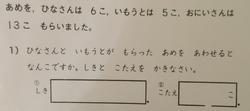 あめを、ひなさんは 6こ、いもうとは 5こ、おにいさんは
13こ もらいました。
1) ひなさんと いもうとが もらった あめを あわせると
なんこですか。しきと こたえを かきなさい。
① しき
② こたえ こ